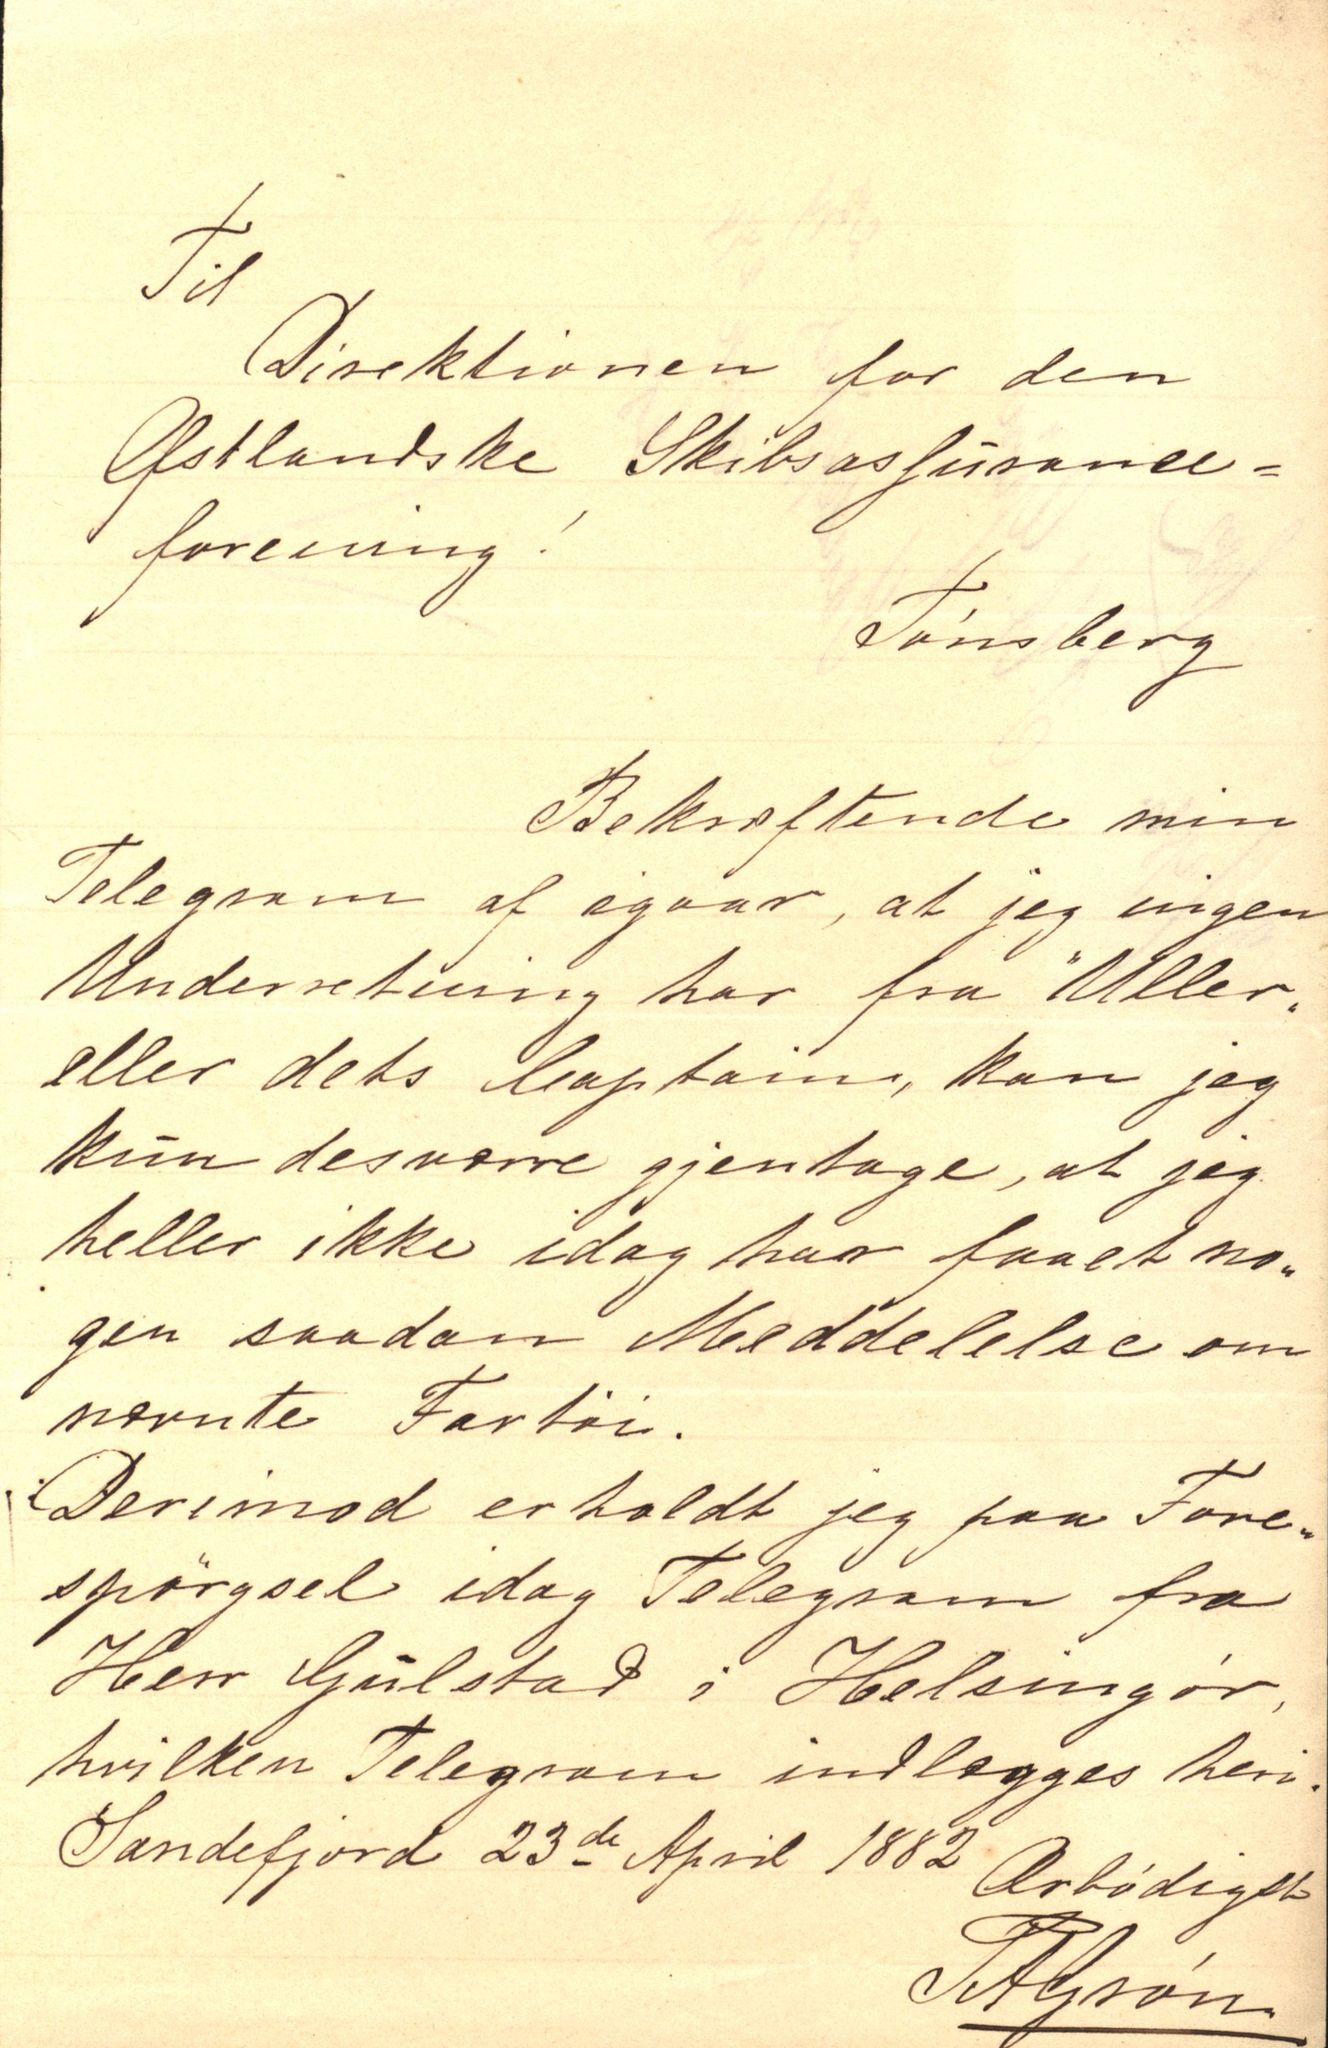 Til
Direktionen for den
Østlandske Skibsassurance=
forening!
Tønsberg
Bekræftende min
Telegram af igaar, at jeg ingen
Underretning har fra "Uller"
eller dets Captain, kan jeg
kun desværre gjentage, at jeg
heller ikke idag har faaet no"
gen saadan Meddelelse om
nævnte Fartöi.
Derimod erholdt jeg paa Fore"
spörgsel idag Telegram fra
Herr Gulstad i Helsingør,
hvilken Telegram indlægges heri.
Sandefjord 23de April 1882
Ærbødigst
Grøn